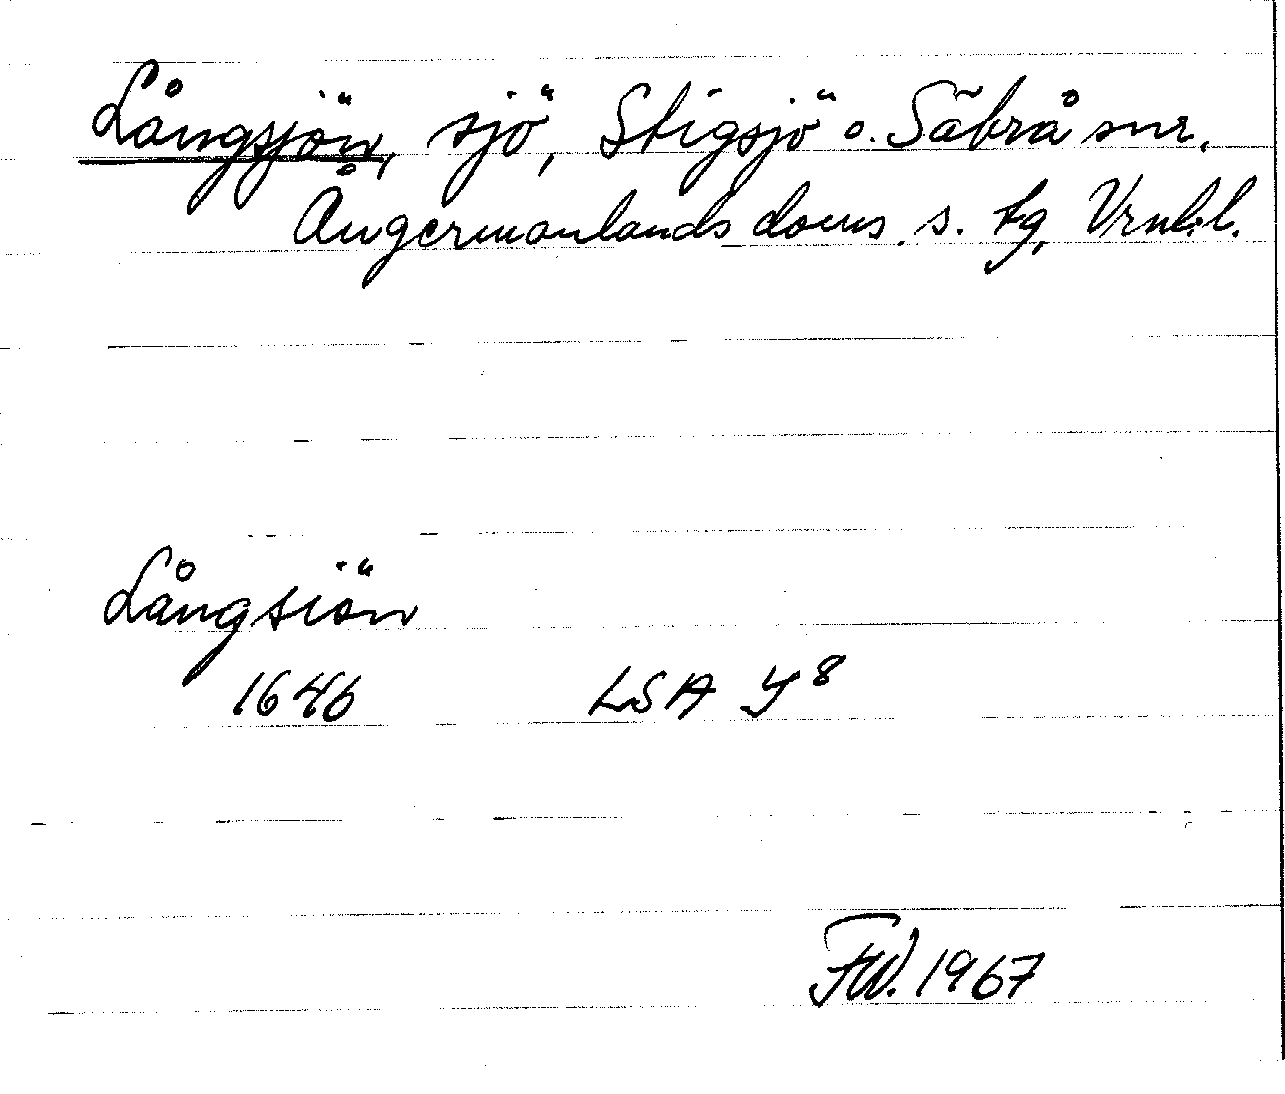 Långsjön, sjö, Stigsjö o. Säbrå snr,
Ångermanlands doms. s. tg, Vrnl.l.
Långsiön
1646 LSA Y 8
FW. 1967